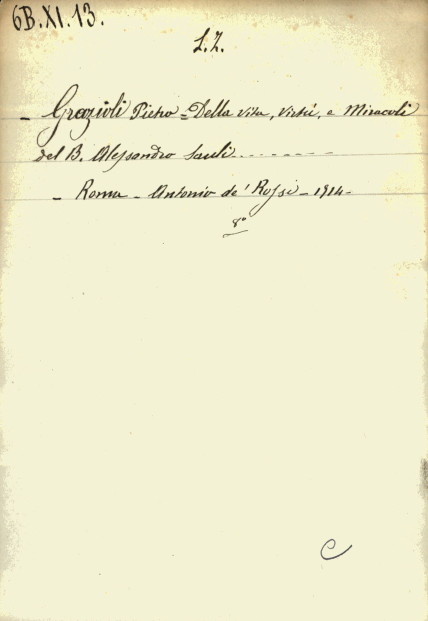 6B.XI.13.
L.Z.
- Grazioli Pietro = Della vita, virtù, e Miracoli
del B. Alessandro Sauli ..........
- Roma - Antonio de' Rossi - 1914 -
8°
C